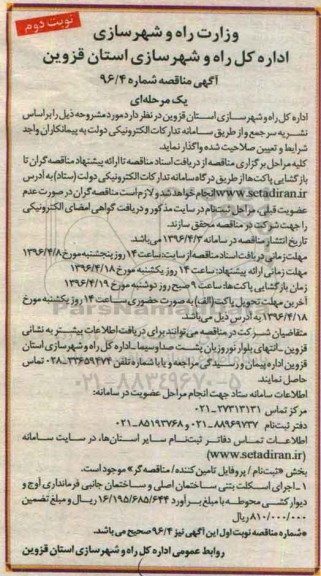 نوبت دوم
وزارت راه و شهرسازی
اداره کل راه و شهرسازی استان قزوین
آگهی مناقصه شماره ۹۶/۴
یک مرحله‌ای
اداره کل راه وشهرسازی استان قزوین در نظر دارد مورد مشروحه ذیل را براساس
نشریه سرجمع و از طریق سامانه تدارکات الکترونیکی دولت به پیمانکاران واجد
شرایط و تعیین صلاحیت شده واگذار نماید.
کلیه مراحل برگزاری مناقصه از دریافت اسناد مناقصه تا ارائه پیشنهاد مناقصه گران تا
بازگشایی پاکت‌ها از طریق درگاه سامانه تدارکات الکترونیکی دولت (ستاد) به آدرس
www.setadiran.ir انجام خواهد شد و لازم است مناقصه گران در صورت عدم
عضویت قبلی، مراحل ثبت نام در سایت مذکور و دریافت گواهی امضای الکترونیکی
را جهت شرکت در مناقصه محقق سازند.
تاریخ انتشار مناقصه در سامانه ۱۳۹۶/۴/۳ می‌باشد.
مهلت زمانی دریافت اسناد مناقصه از سایت: ساعت ۱۴ روز پنجشنبه مورخ ۱۳۹۶/۴/۸
مهلت زمانی ارائه پیشنهاد: ساعت ۱۴ روز یکشنبه مورخ ۱۳۹۶/۴/۱۸
زمان بازگشایی پاکت‌ها: ساعت ۹ صبح روز دوشنبه مورخ ۱۳۹۶/۴/۱۹
آخرین مهلت تحویل پاکت (الف) به صورت حضوری ساعت ۱۴ روز یکشنبه مورخ
۱۳۹۶/۴/۱۸ به آدرس ذیل می‌باشد.
متقاضیان شرکت در مناقصه می‌توانند برای دریافت اطلاعات بیشتر به نشانی
قزوین - انتهای بلوار نوروزیان پشت صداوسیما - اداره کل راه و شهرسازی استان
قزوین اداره پیمان و رسیدگی مراجعه و یا با شماره تلفن ۳۳۶۵۹۴۷۴-۰۲۸ تماس
حاصل نمایند.
اطلاعات سامانه ستاد جهت انجام مراحل عضویت در سامانه:
مرکز تماس ۲۷۳۱۳۱۳۱-۰۲۱
دفتر ثبت نام ۸۸۹۶۹۷۳۷-۰۲۱ و ۸۵۱۹۳۷۶۸-۰۲۱
اطلاعات تماس دفاتر ثبت‌نام سایر استان‌ها، در سایت سامانه
(www.setadiran.ir)
بخش «ثبت‌نام / پروفایل تامین کننده/ مناقصه گر» موجود است.
۱ - اجرای اسکلت بتنی ساختمان اصلی و ساختمان جانبی فرمانداری آوج و
دیوارکشی محوطه با مبلغ برآورد ۱۶/۱۹۵/۶۸۵/۶۴۴ ریال و مبلغ تضمین
۸۱۰/۰۰۰/۰۰۰ ریال
*شماره مناقصه نوبت اول این آگهی نیز ۹۶/۴ صحیح می‌باشد.
روابط عمومی اداره کل راه و شهرسازی استان قزوین
۰۲۱-۸۸۳۴۹۶۷۰-۵